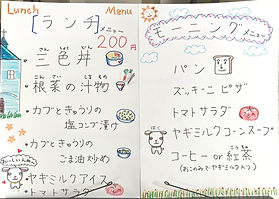 Lunch Menu
[ランチ]メニュー
200円
・三色丼
さんしょくどん
・根菜の汁物
こんさい しるもの
・カブときゅうりの
塩コンブ漬け
・カブときゅうりの
ごま油炒め
ヤギミルクアイス
・トマトサラダ
モーニングメニュー
パン
ズッキーニピザ
トマトサラダ
ヤギミルクコーンスープ
コーヒー or 紅茶
(おこのみでヤギミルク入り)